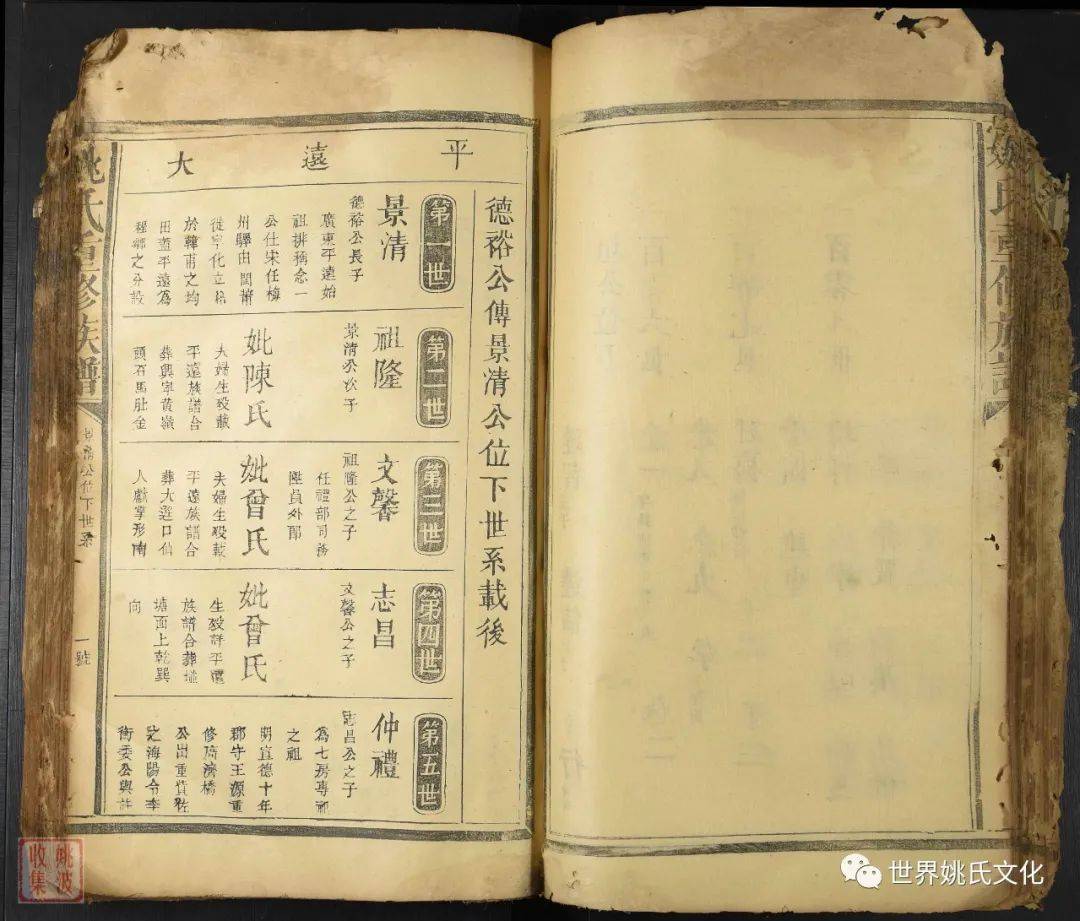 平遠大
德裕公傳景清公位下世系載後
第一世
景清
德裕公長子
廣東平遠始
祖排稱念一
公仕宋任梅
州驛由閩莆
徙寧化立籍
於韓甫之均
田蓋平遠為
程鄉之分設
第二世
祖隆
景清公次子
妣陳氏
夫婦生殁載
平遠族譜合
葬興寧黃嶺
頭石馬肚金
第三世
文馨
祖隆公之子
任禮部司務
陞員外郎
妣曾氏
夫婦生殁載
平遠族譜合
葬大遥口仙
人獻掌形南
第四世
志昌
文馨公之子
妣曾氏
生殁詳平遠
族譜合葬壩
塘面上乾巽
向
第五世
仲禮
志昌公之子
為七房專祠
之祖
明宣德十年
郡守王源重
修廣濟橋
公出重貲佐
之海陽令李
衡委公與許
姚氏重修族譜
景清公位下世系
一號
姚氏重修族譜
姚波
收集
世界姚氏文化